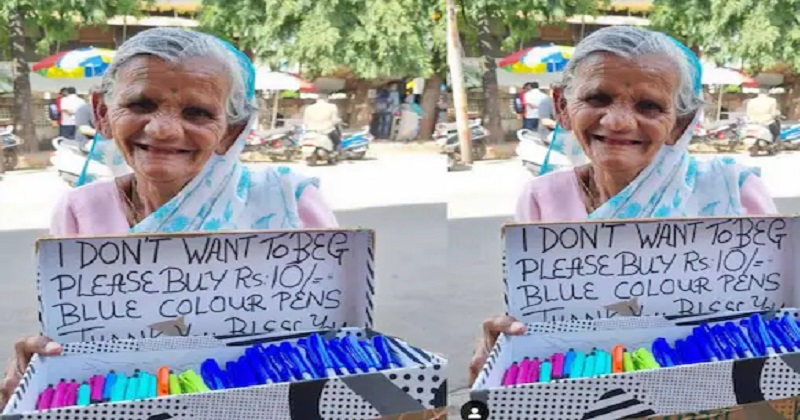 I DON'T WANT To BEG
PLEASE BUY Rs:10/-
BLUE COLOUR PENS
THANK
I DON'T WANT To BEG
PLEASE BUY Rs:10/-
BLUE COLOUR PENS